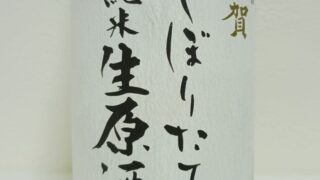 賀
しぼりたて
純米
生原酒